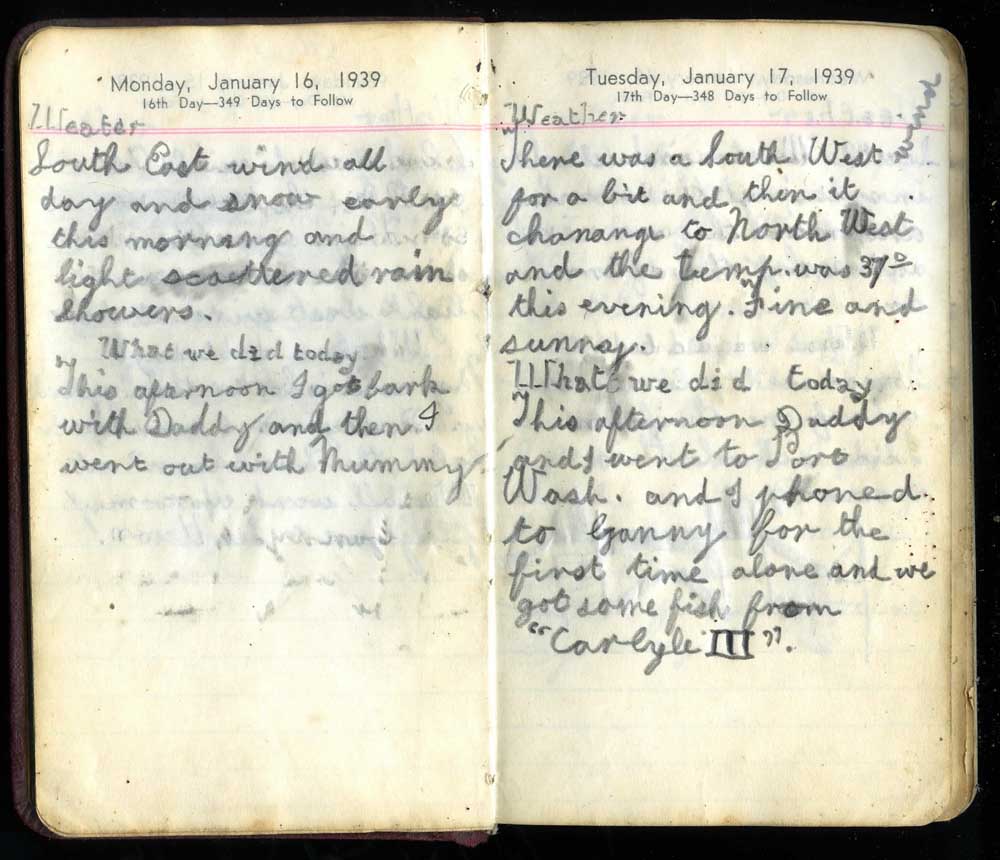 Monday, January 16, 1939
16th Day—349 Days to Follow
Weater
South East wind all
day and snow early
this morning and
light scattered rain
showers.
What we did today
This afternoon I got bark
with Daddy and then I
went out with Mummy
Tuesday, January 17, 1939
17th Day—348 Days to Follow
Weather
There was a South West wind
for a bit and then it
chanange to North West
and the temp. was 37°
this evening. Fine and
sunny.
What we did today
This afternoon Daddy
and I went to Port
Wash. and I phoned
to Ganny for the
first time alone and we
got some fish from
"Carlyle III".